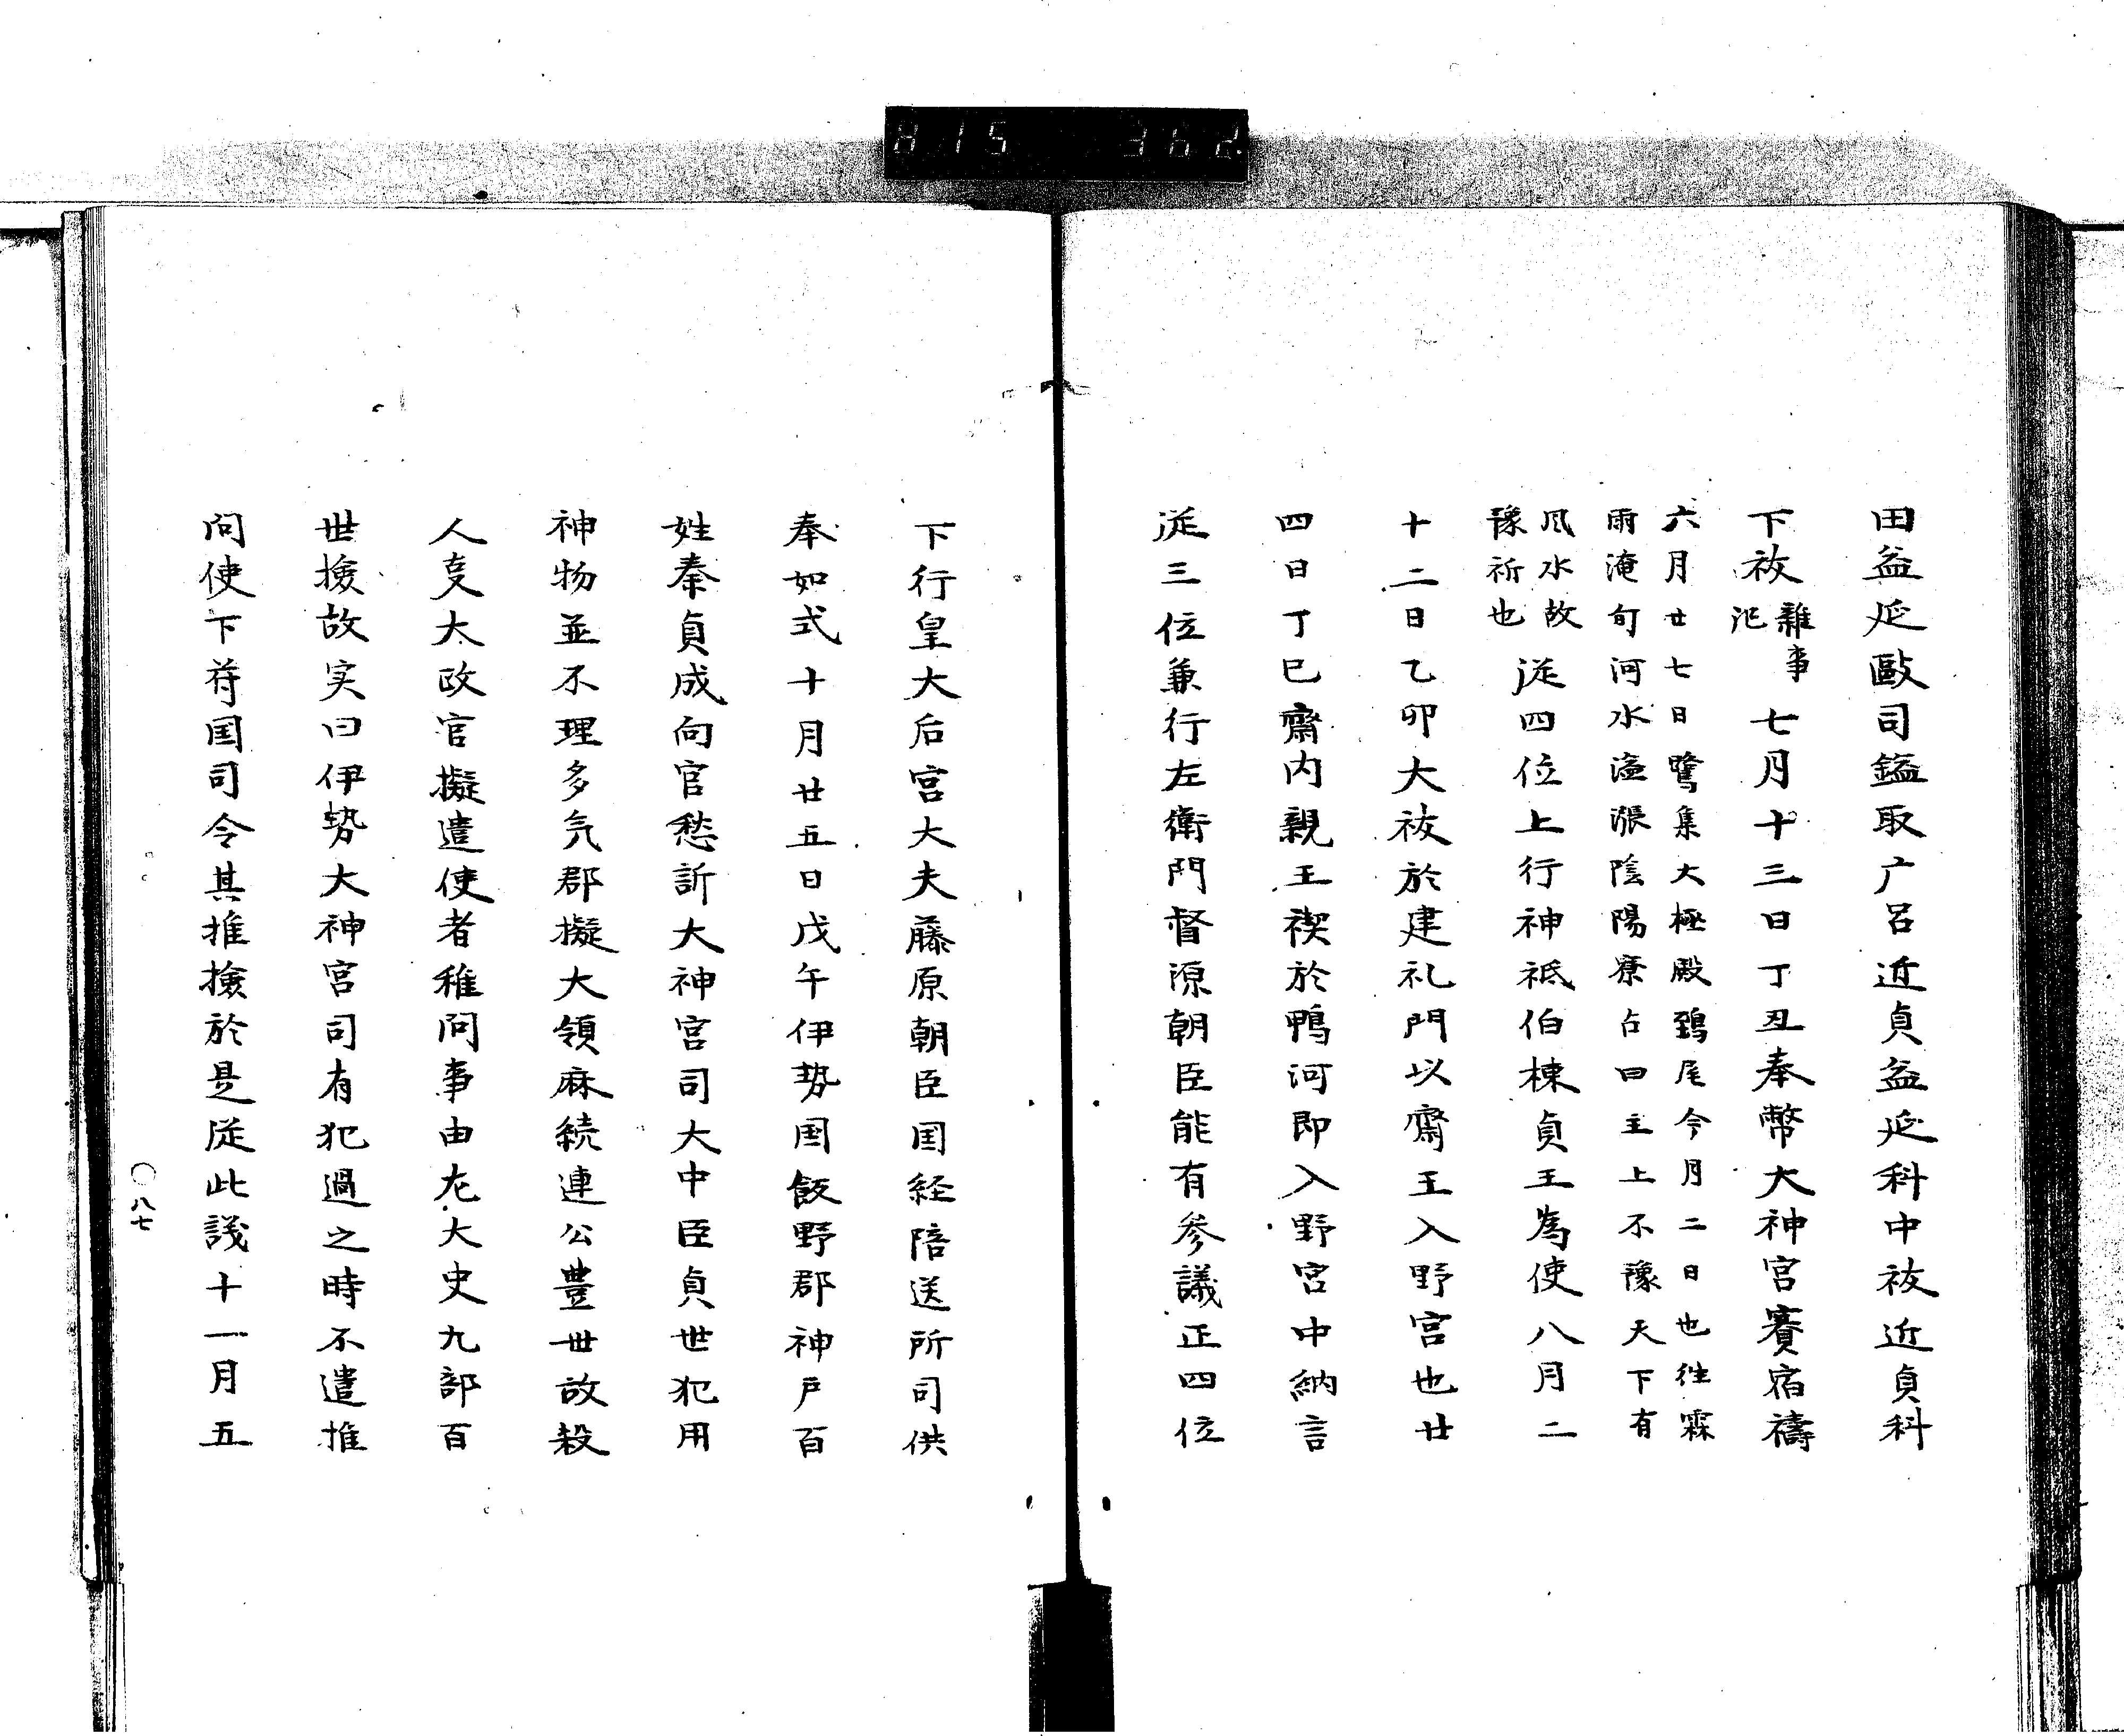 815 362
田益延毆司鎰取广呂近貞益延科中祓近貞科
下祓雜事
記七月十三日丁丑奉幣大神宮賽宿禱
六月廿七日鷺集大極殿鵄尾今月二日也往霖
雨淹旬河水溢漲陰陽寮占曰主上不豫天下有
風水故
豫祈也從四位上行神祗伯棟貞王為使八月二
十二日乙卯大祓於建礼門以齋王入野宮也廿
四日丁巳齋内親王禊於鴨河即入野宮中納言
從三位兼行左衛門督源朝臣能有參議正四位
下行皇大后宮大夫藤原朝臣国経陪送所司供
奉如式十月廿五日戊午伊勢国飯野郡神戸百
姓秦貞成向官愁訴大神宮司大中臣貞世犯用
神物並不理多気郡擬大領麻続連公豊世故殺
人支大政官擬遣使者稚問事由左大史九部百
世撿故実曰伊勢大神宮司有犯過之時不遣推
問使下符国司令其推撿於是從此議十一月五
〇八七